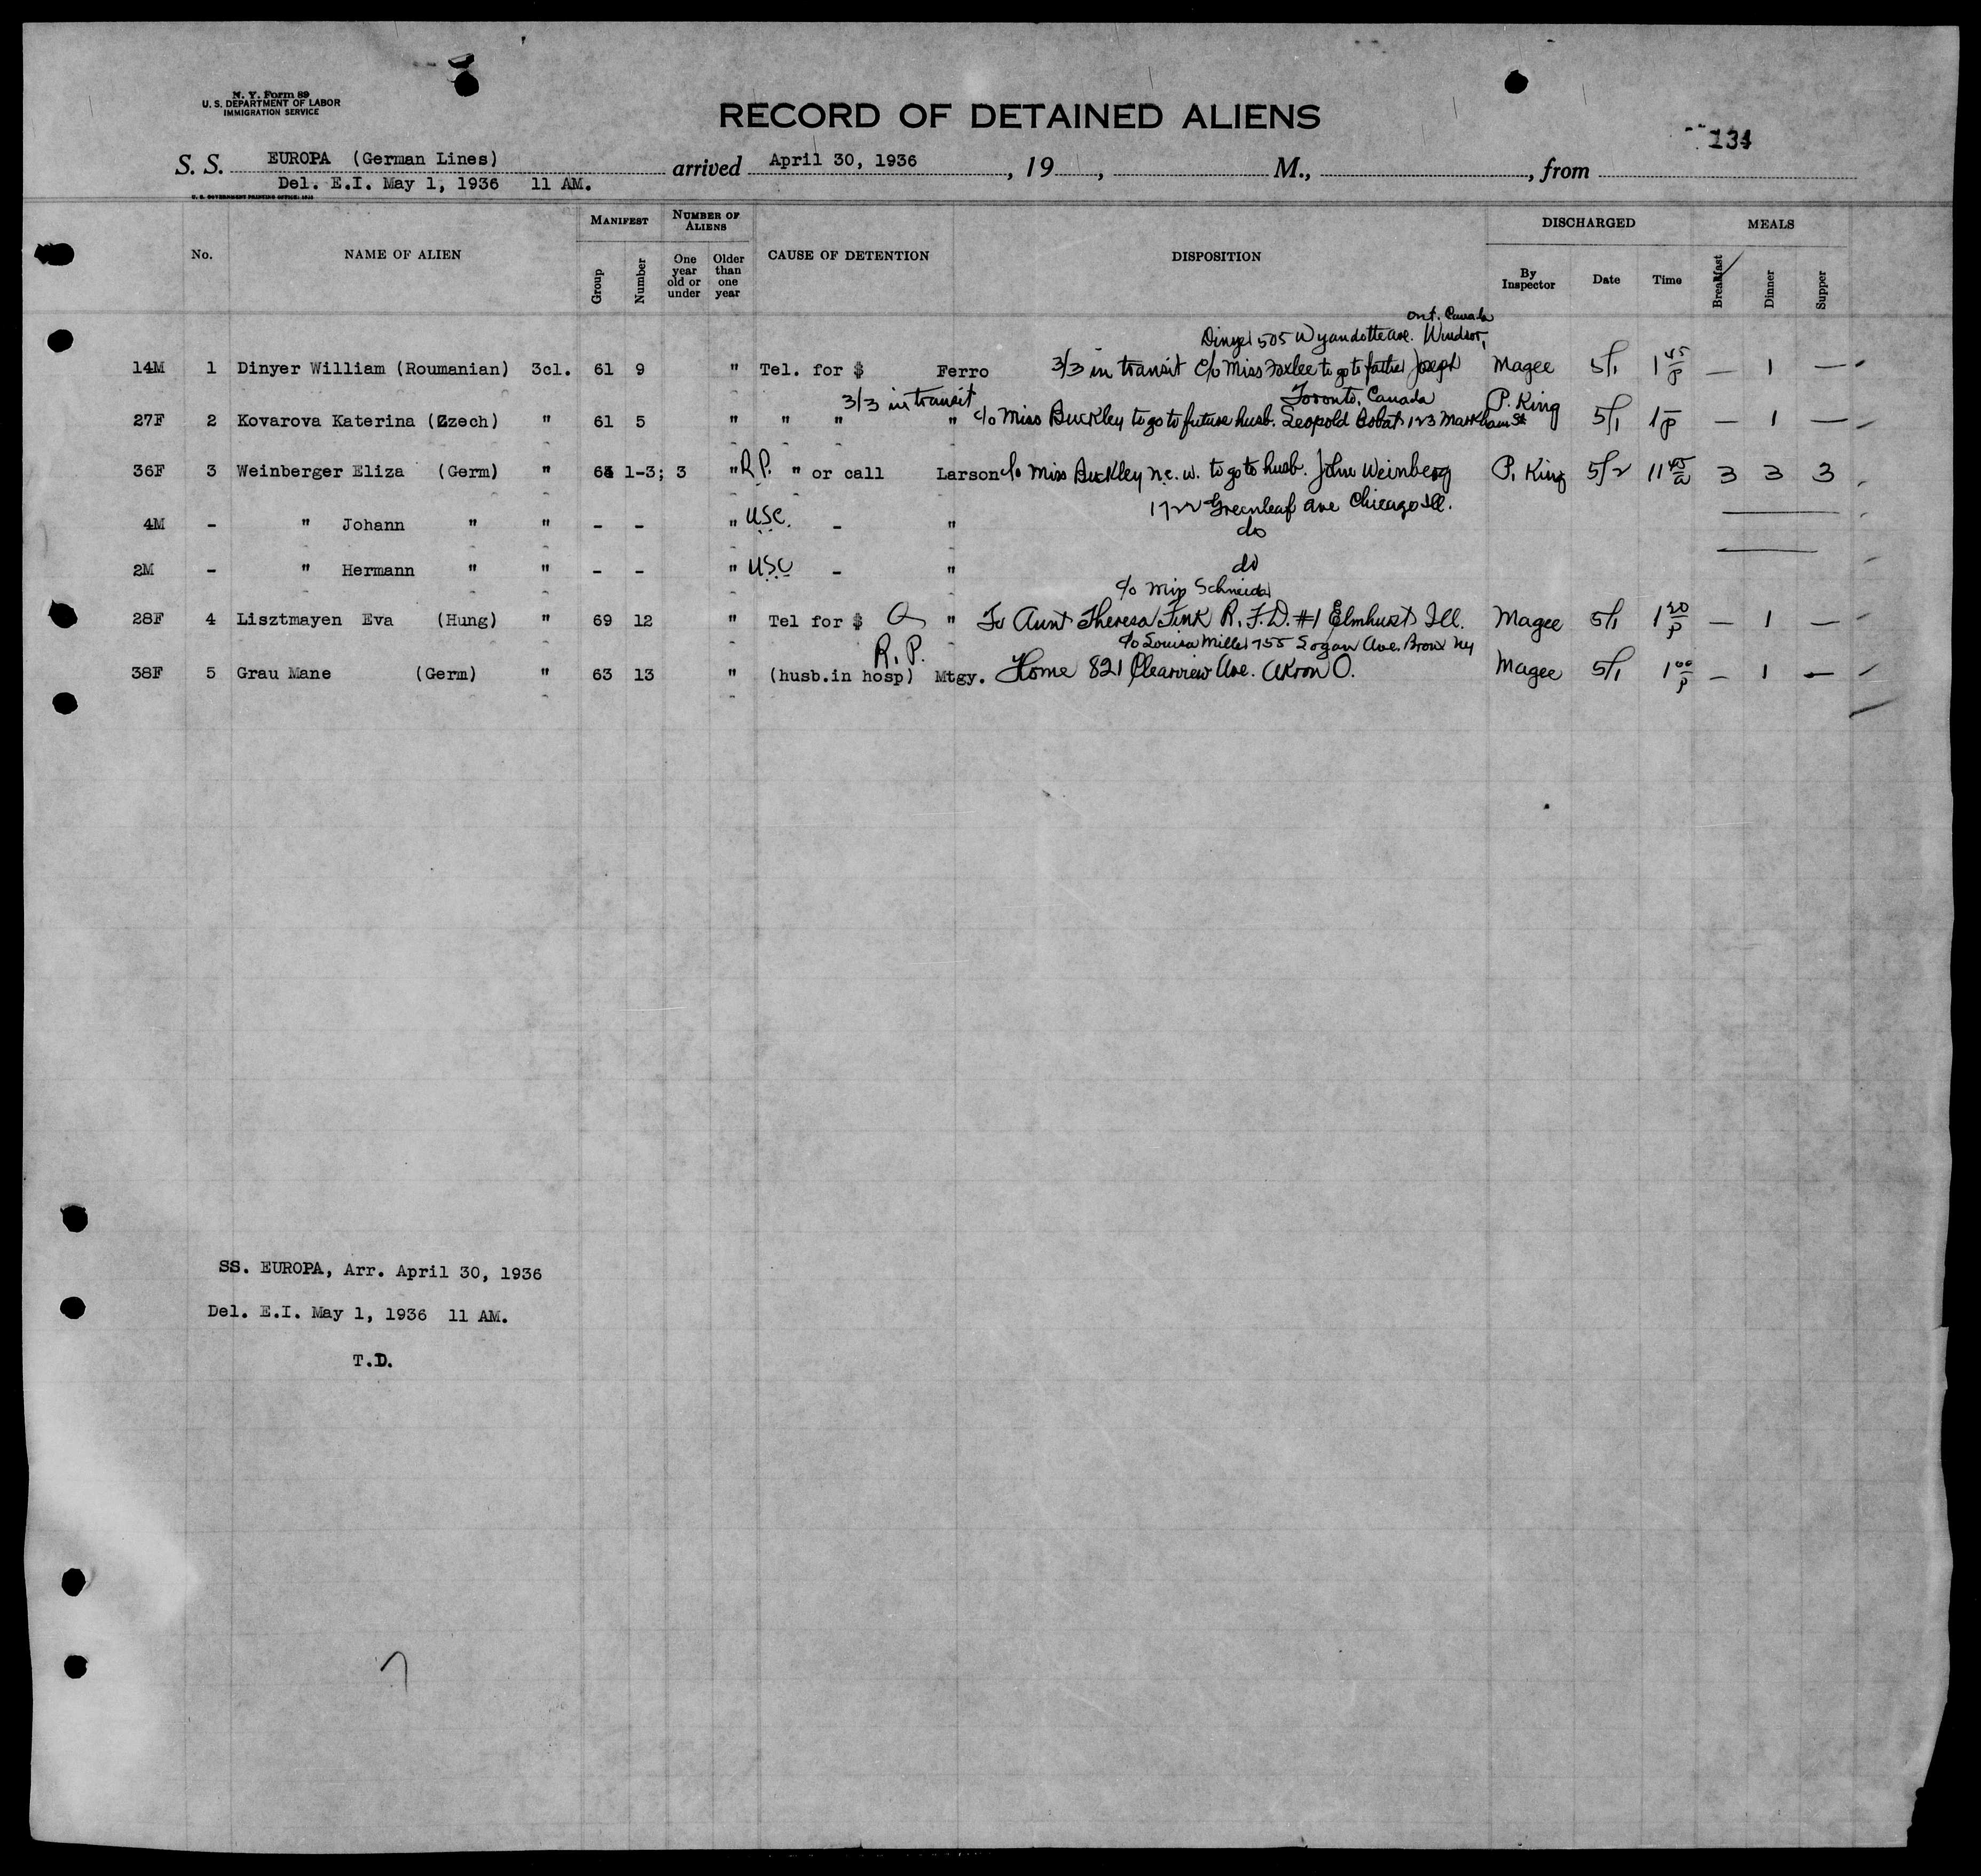 N. Y. Form 89
U. S. DEPARTMENT OF LABOR
IMMIGRATION SERVICE
RECORD OF DETAINED ALIENS
134
S. S. EUROPA (German Lines) arrived April 30, 1936, 19 , M., , from
Del. E.I. May 1, 1936 11 AM.
U. S. GOVERNMENT PRINTING OFFICE:
No. NAME OF ALIEN MANIFEST Group Number NUMBER OF ALIENS One year old or under Older than one year CAUSE OF DETENTION DISPOSITION DISCHARGED By Inspector Date Time MEALS Breakfast Dinner Supper
Ont. Canada
Dinyer 505 Wyandotte ave. Windsor,
14M 1 Dinyer William (Roumanian) 3cl. 61 9 " Tel. for $ Ferro 3/3 in transit c/o Miss Foxlee to go to father Joseph Magee 5/1 1 45 P — 1 —
3/3 in transit Toronto, Canada
27F 2 Kovarova Katerina (Czech) " 61 5 " " " " c/o Miss Buckley to go to future husb. Leopold 123 Markham St P. King 5/1 1 P — 1 —
36F 3 Weinberger Eliza (Germ) " 1-3; 3 " R.P. " or call Larson c/o Miss Buckley n.c.w. to go to husb. John Weinberg P. King 5/2 11 45 a 3 3 3
1722 Greenleaf ave Chicago Ill.
4M - " Johann " " - - " USC. - " do
2M - " Hermann " " - - " USC - " do
c/o Miss Schneider
28F 4 Lisztmayen Eva (Hung) " 69 12 " Tel for $ " To Aunt Theresa Fink R.F.D. #1 Elmhurst Ill. Magee 5/1 1 20 P — 1 —
c/o Louisa Miller 755 Logan Ave. Bronx NY
R.P.
38F 5 Grau Mane (Germ) " 63 13 " (husb.in hosp) Mtgy. Home 821 Clearview Ave. Akron O. Magee 5/1 1 00 P — 1 —
SS. EUROPA, Arr. April 30, 1936
Del. E.I. May 1, 1936 11 AM.
T.D.